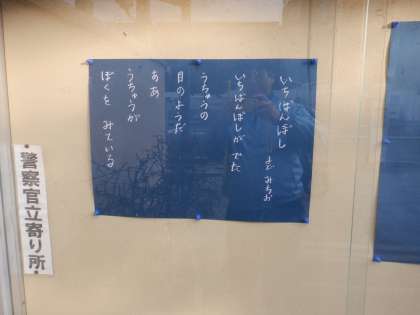 いちばんぼし
まど みちお
いちばんぼしが でた
うちゅうの
目のようだ
ああ
うちゅうが
ぼくを みている
警察官立寄り所